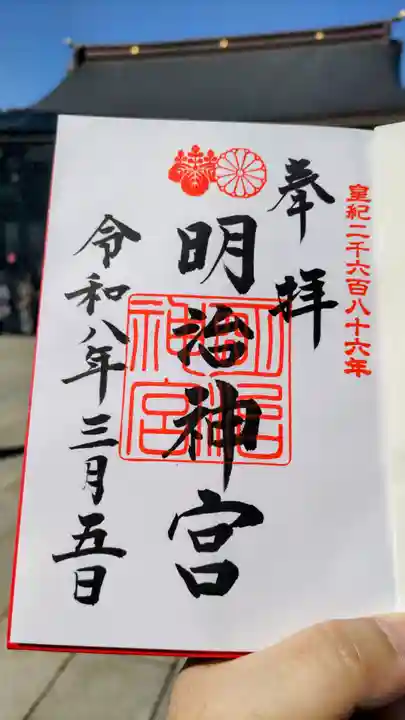 皇紀二千六百八十六年
奉拝
明治神宮
明治神宮
令和八年三月五日